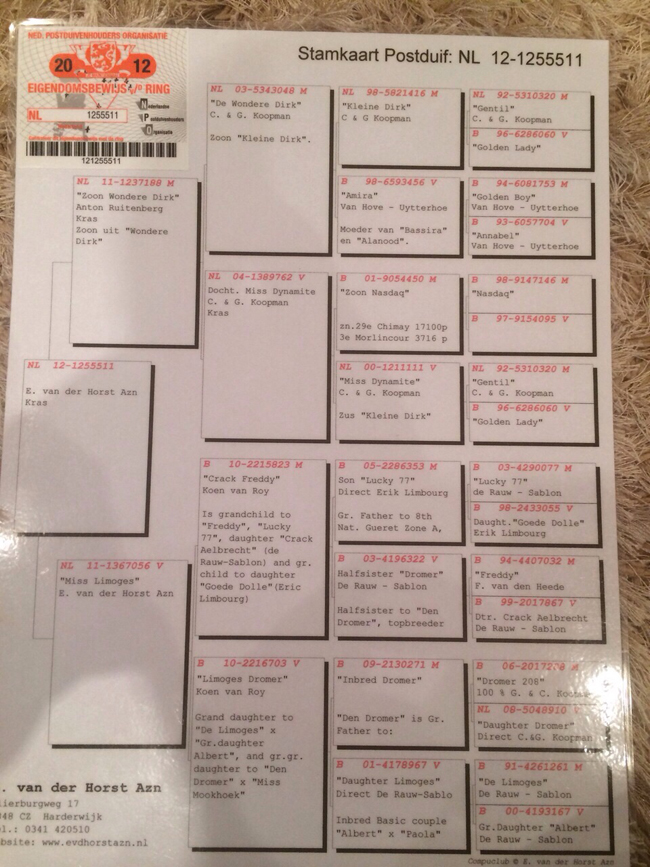 NED. POSTDUIVENHOUDERS ORGANISATIE
20 12
EIGENDOMSBEWIJS v/d RING
NL 1255511
Nederlandse
Postduivenhouders
Organisatie
121255511
Stamkaart Postduif: NL 12-1255511
NL 12-1255511
E. van der Horst Azn
Kras
NL 11-1237188 M
"Zoon Wondere Dirk"
Anton Ruitenberg
Kras
Zoon uit "Wondere
Dirk"
NL 11-1367056 V
"Miss Limoges"
E. van der Horst Azn
NL 03-5343048 M
"De Wondere Dirk"
C. & G. Koopman
Zoon "Kleine Dirk".
NL 04-1389762 V
Docht. Miss Dynamite
C. & G. Koopman
Kras
B 10-2215823 M
"Crack Freddy"
Koen van Roy
Is grandchild to
"Freddy", "Lucky
77", daughter "Crack
Aelbrecht" (de
Rauw-Sablon) and gr.
child to daughter
"Goede Dolle"(Eric
Limbourg)
B 10-2216703 V
"Limoges Dromer"
Koen van Roy
Grand daughter to
"De Limoges" x
"Gr.daughter
Albert", and gr.gr.
daughter to "Den
Dromer" x "Miss
Mookhoek"
NL 98-5821416 M
"Kleine Dirk"
C & G Koopman
B 98-6593456 V
"Amira"
Van Hove - Uytterhoe
Moeder van "Bassira"
en "Alanood".
B 01-9054450 M
"Zoon Nasdaq"
zn.29e Chimay 17100p
3e Morlincour 3716 p
NL 00-1211111 V
"Miss Dynamite"
C. & G. Koopman
Zus "Kleine Dirk"
B 05-2286353 M
Son "Lucky 77"
Direct Erik Limbourg
Gr. Father to 8th
Nat. Gueret Zone A,
B 03-4196322 V
Halfsister "Dromer"
De Rauw - Sablon
Halfsister to "Den
Dromer", topbreeder
B 09-2130271 M
"Inbred Dromer"
"Den Dromer" is Gr.
Father to:
B 01-4178967 V
"Daughter Limoges"
Direct De Rauw-Sablo
Inbred Basic couple
"Albert" x "Paola"
NL 92-5310320 M
"Gentil"
C. & G. Koopman
B 96-6286060 V
"Golden Lady"
B 94-6081753 M
"Golden Boy"
Van Hove - Uytterhoe
B 93-6057704 V
"Annabel"
Van Hove - Uytterhoe
B 98-9147146 M
"Nasdaq"
B 97-9154095 V
NL 92-5310320 M
"Gentil"
C. & G. Koopman
B 96-6286060 V
"Golden Lady"
B 03-4290077 M
"Lucky 77"
de Rauw - Sablon
B 98-2433055 V
Daught."Goede Dolle"
Erik Limbourg
B 94-4407032 M
"Freddy"
F. van den Heede
B 99-2017867 V
Dtr. Crack Aelbrecht
De Rauw - Sablon
B 06-2017208 M
"Dromer 208"
100 % G. & C. Koopma
NL 08-5048910 V
"Daughter Dromer"
Direct C.&G. Koopman
B 91-4261261 M
"De Limoges"
De Rauw - Sablon
B 00-4193167 V
Gr.Daughter "Albert"
De Rauw - Sablon
. van der Horst Azn
ierburgweg 17
48 CZ Harderwijk
l.: 0341 420510
bsite: www.evdhorstazn.nl
Compuclub © E. van der Horst Azn